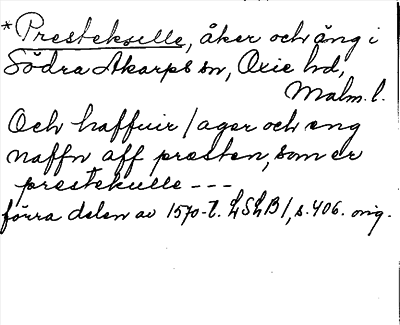 *Prestekulle, åker och äng i
Södra Åkarps sn, Oxie hd,
Malm. l.
Och haffuir / ager och eng
naffn aff presten, som er
prestekulle ---
förra delen av 1570-t. LSLB1, s. 406. orig.